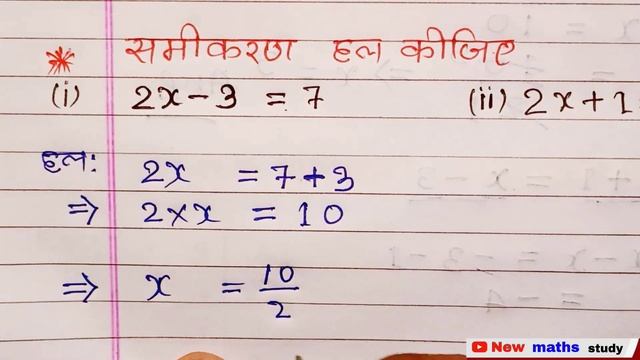 * समीकरण हल कीजिए
(i) 2x - 3 = 7 (ii) 2x + 1
हल: 2x = 7 + 3
⇒ 2 × x = 10
⇒ x = 10/2
New maths study